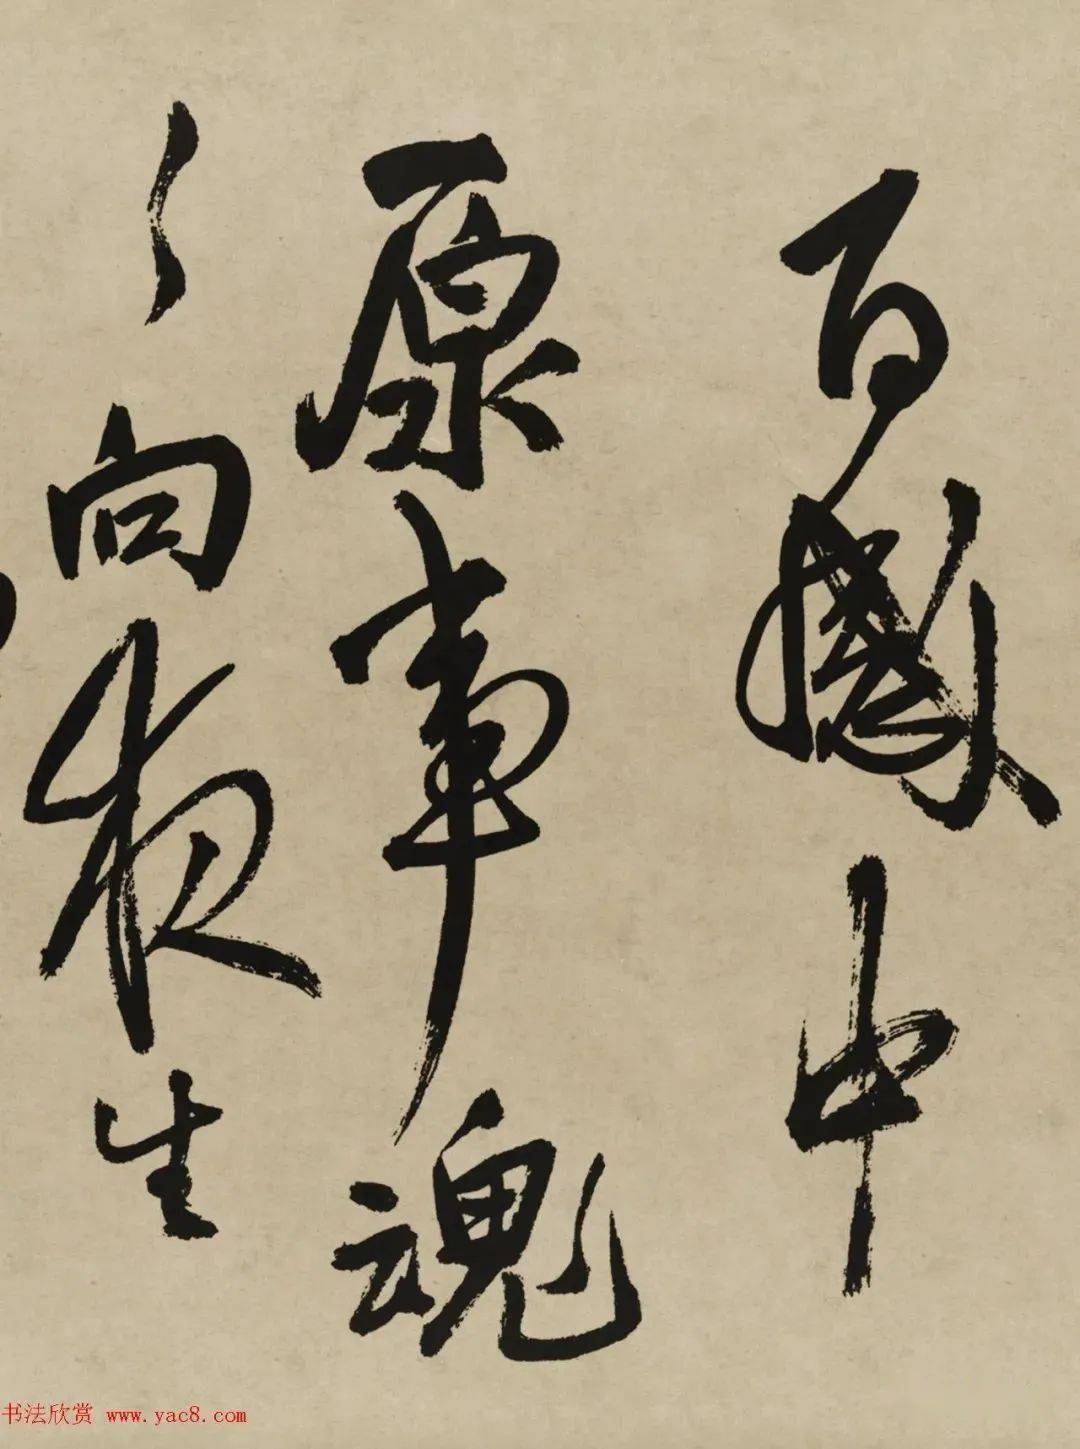 百感中
原事魂
〻向夜生
书法欣赏 www.yac8.com